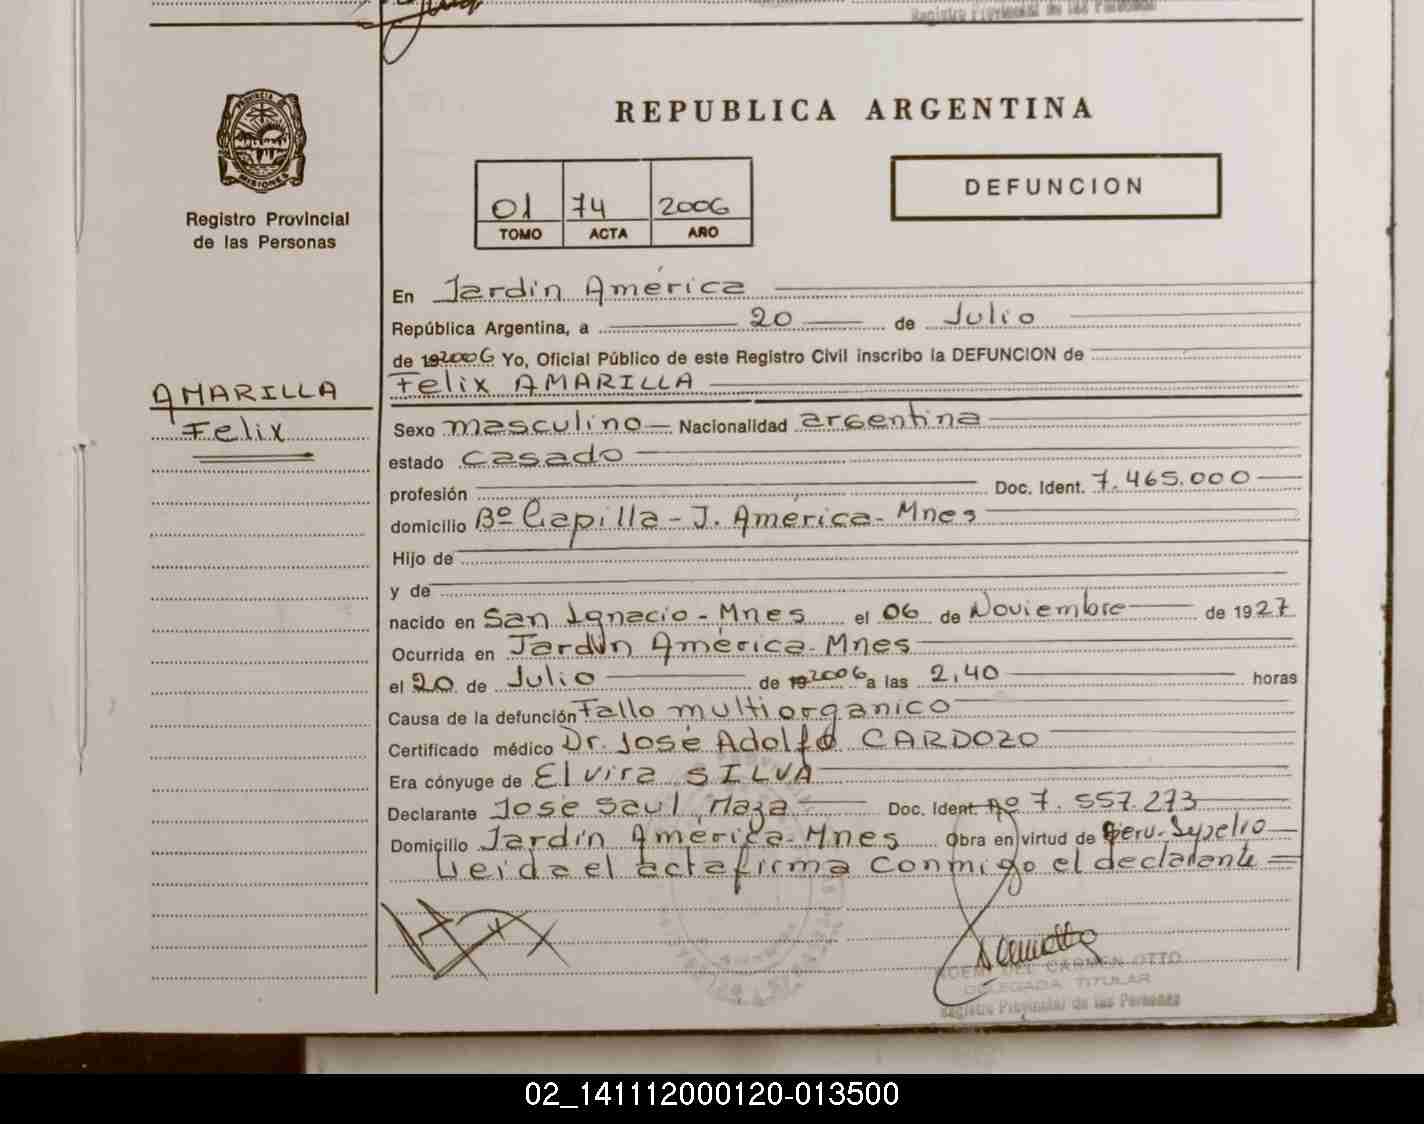 Registro Provincial de las Personas
PROVINCIA DE
MISIONES
Registro Provincial
de las Personas
REPUBLICA ARGENTINA
01 74 2006
TOMO ACTA AÑO
DEFUNCION
En Jardín América
República Argentina, a 20 de Julio
de 192006 Yo, Oficial Público de este Registro Civil inscribo la DEFUNCION de
Felix AMARILLA
AMARILLA
Felix
Sexo masculino Nacionalidad argentina
estado casado
profesión Doc. Ident. 7.465.000
domicilio Bº Capilla - J. America - Mnes
Hijo de
y de
nacido en San Ignacio - Mnes el 06 de Noviembre de 1927
Ocurrida en Jardín América - Mnes
el 20 de Julio de 192006 a las 2,40 horas
Causa de la defunción Fallo multiorganico
Certificado médico Dr. José Adolfo CARDOZO
Era cónyuge de Elvira SILVA
Declarante José Saul Maza Doc. Ident. Nº 7.557.273
Domicilio Jardín América - Mnes Obra en virtud de Serv. Sepelio
Leida el acta firma conmigo el declarante =
NOEMI DEL CARMEN OTTO
DELEGADA TITULAR
Registro Provincial de las Personas
02_141112000120-013500